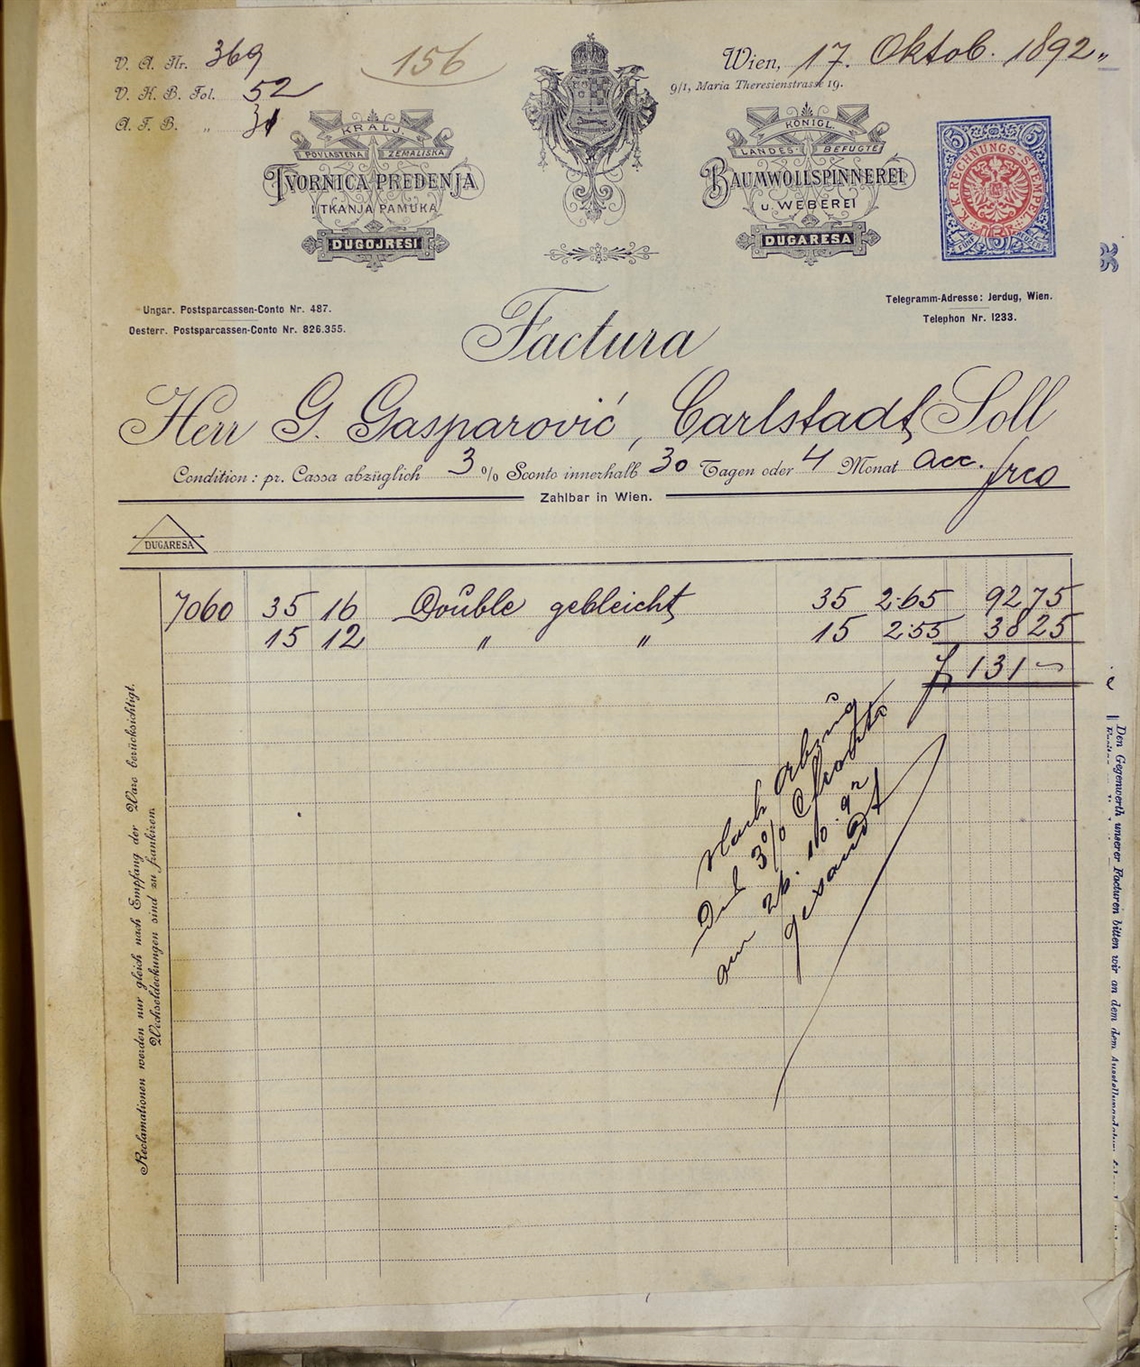 V. A. Nr. 369
V. K. B. Fol. 52
A. F. B. „ 31
156
Wien, 17. Oktob. 1892.
9/1, Maria Theresienstrasse 19.
KRALJ.
POVLAŠTENA ZEMALJSKA
TVORNICA PREDENJA
I TKANJA PAMUKA
DUGOJRESI
KÖNIGL.
LANDES- BEFUGTE
BAUMWOLLSPINNEREI
U. WEBEREI
DUGARESA
5 5
K. K. RECHNUNGS-STEMPEL
Ungar. Postsparcassen-Conto Nr. 487.
Oesterr. Postsparcassen-Conto Nr. 826.355.
Telegramm-Adresse: Jerdug, Wien.
Telephon Nr. 1233.
Factura
Herr G. Gasparović, Carlstadt Soll
Condition: pr. Cassa abzüglich 3 % Sconto innerhalb 30 Tagen oder 4 Monat acc. frco
Zahlbar in Wien.
DUGARESA
7060 35 16 Double gebleicht 35 2·65 92 75
15 12 „ „ 15 2·55 38 25
f 131 —
Nach Abzug
3%
am 26. 10. 92
gesandt
Reclamationen werden nur gleich nach Empfang der Ware berücksichtigt.
Wechseldeckungen sind zu frankiren.
Den Gegenwerth unserer Facturen bitten wir an dem dem